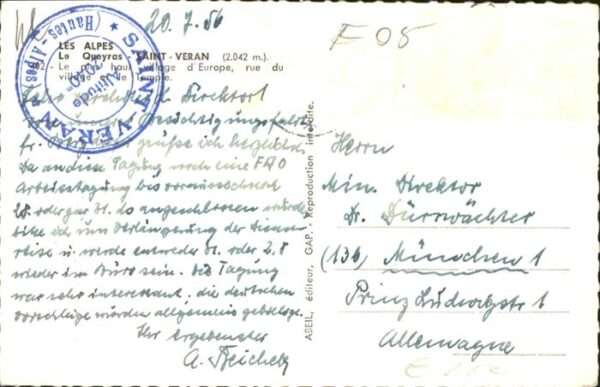 20.7.56
F 05
SAINT-VERAN
(Hautes-Alpes)
Altitude
LES ALPES
Le Queyras SAINT-VERAN (2.042 m.)
d'Europe, rue du
Temple.
Direktor!
Besichtigungsfahrt
grüße ich herzlich.
Da an diese Tagung noch eine FAO
Arbeitstagung bis voraussichtlich
oder gar 31. so angeschlossen wurde
bitte ich um Verlängerung der Dienst-
reise u. werde entweder 31. oder 2.8
wieder im Büro sein. Die Tagung
war sehr interessant, die deutschen
Vorschläge wurden allgemein gebilligt.
Ihr Ergebenster
A.
ABEIL, éditeur, GAP. - Reproduction interdite.
Herrn
Min. Direktor
Dr. Dürrwächter
(13b) München 1
Prinz Ludwigstr 1
Allemagne